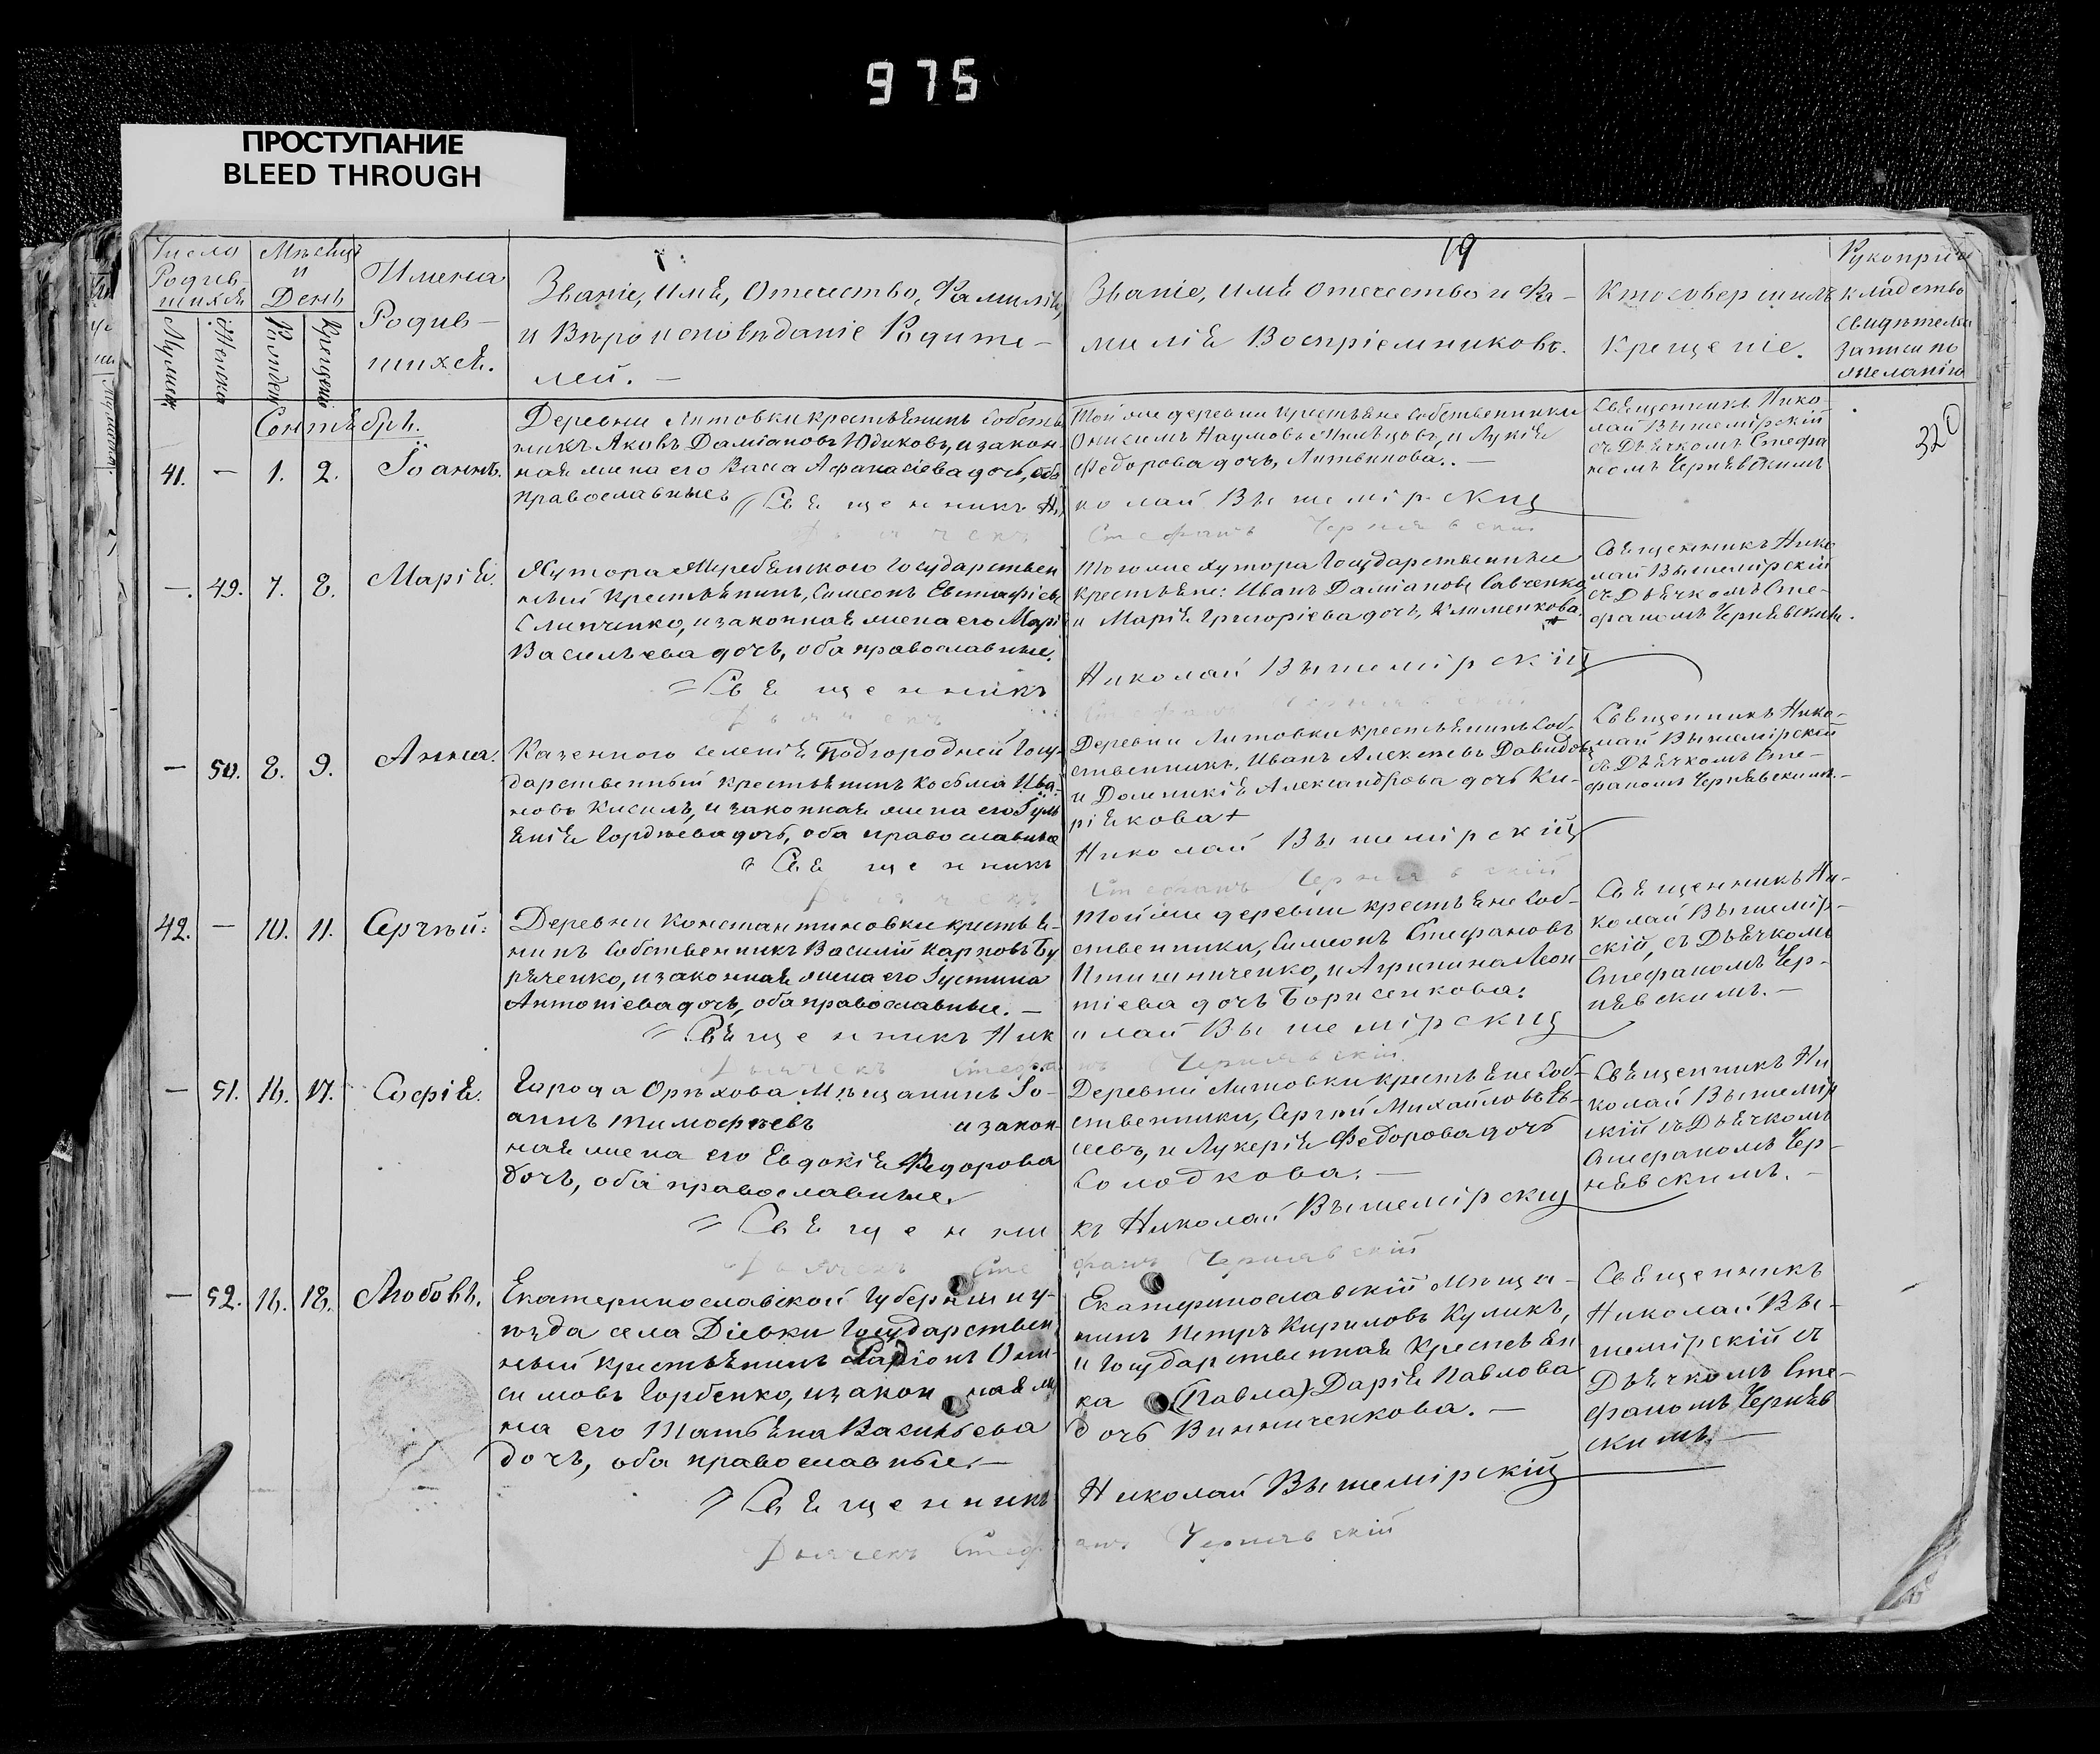 975
ПРОСТУПАНИЕ
BLEED THROUGH
19
Число Родив шихся
Мужска Женска
Мѣсяцъ и День
Рожден Крещенія
Имена Родив- шихся.
Званіе, Имя, Отечество, Фамилія,
и Вѣроисповѣданіе Родите-
лей. —
Званіе, имя отечество и Фа-
милія Воспріемниковъ.
Кто совершилъ
Крещеніе.
Рукоприк
кладство
свидѣтелей
записи по
желанію
32
Сентябрь.
41. — 1. 2. Іоаннъ.
Деревни Литовки крестьянинъ собствен
никъ Аковъ Даміановъ Юдиковъ, и закон-
ная жена его Васа Афанасіева дочь, оба
православные
Той же деревни крестьяне собственники
Онисимъ Наумовъ и Лукія
Федорова дочь, Литвинова. —
Священникъ Нико-
лай Вышемірскій
съ Дьячкомъ Стефа
номъ Чернявскимъ
Священникъ Ни
колай Вышемірскій
Дьячекъ Стефанъ Чернявскій
—. 49. 7. 8. Марія.
Хутора Жеребянского Государствен
ный крестьянинъ, Симеонъ Евстафіевъ
Слипченко, и законная жена его Марія
Васильева дочь, оба православные.
Того же хутора Государственные
крестьяне: Иванъ Даміановъ Савченко
и Марія Григоріева дочь, Клименкова.
Священникъ Нико
лай Вышемірскій
съ Дьячкомъ Сте-
фаномъ Чернявскимъ.
Священникъ
Николай Вышемірскій
Дьячекъ Стефанъ Чернявскій
— 50. 8. 9. Анна.
Казенного селенія Подгородней Госу-
дарственный крестьянинъ Косьма Ива-
новъ Кисиль, и законная жена его Іуль
янія Гордѣева дочь, оба православные
Деревни Литовки крестьянинъ Соб-
ственникъ, Иванъ Алексѣевъ Давидовъ
и Домникія Александрова дочь Ки-
ріякова +
Священникъ Нико-
лай Вышемірскій
съ Дьячкомъ Сте-
фаномъ Чернявскимъ.—
Священникъ
Николай Вышемірскій
Дьячекъ Стефанъ Чернявскій
42. — 10. 11. Сергѣй:
Деревни Константиновки крестья-
нинъ Собственникъ Василій Карповъ Бу
ряченко, и законная жена его Іустина
Антоніева дочь, оба православные. —
Той же деревни крестьяне Соб-
ственники, Симеонъ Стефановъ
Пшиниченко, и Агрипина Леон
тіева дочь Борисенкова:
Священникъ Ни-
колай Вышемір-
скій, съ Дьячкомъ
Стефаномъ Чер-
нявскимъ. —
Священникъ Ник
олай Вышемірскій
Дьячекъ Стефанъ Чернявскій
— 51. 16. 17. Софія.
Города Орѣхова Мѣщанинъ Іо-
аннъ Тимофѣевъ и закон-
ная жена его Евдокія Федорова
дочь, оба православные.
Деревни Литовки крестьяне Соб-
ственники, Сергѣй Михайловъ Ев-
сеевъ, и Лукерія Федорова дочь
Солодкова. —
Священникъ Ни
колай Вышемір
скій съ Дьячкомъ
Стефаномъ Чер-
нявскимъ. —
Священни
къ Николай Вышемірскій
Дьячекъ Стефанъ Чернявскій
— 52. 16. 18. Любовь.
Екатеринославской Губерніи и у-
ѣзда села Діевки Государствен
ный крестьянинъ Ларіонъ Они-
симовъ Горбенко, и закон ная же
на его Татьяна Васильева
дочь, оба православные. —
Екатеринославскій Мѣща-
нинъ Петръ Кириловъ Куликъ,
и Государственная Крестьян
ка (Павла) Дарія Павлова
дочь Винниченкова. —
Священникъ
Николай Вы-
шемірскій съ
Дьячкомъ Сте-
фаномъ Черняв
скимъ. —
Священникъ
Николай Вышемірскій
Дьячекъ Стефанъ Чернявскій